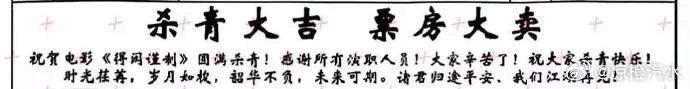 杀青大吉 票房大卖
祝贺电影《得闲谨制》圆满杀青！感谢所有演职人员！大家辛苦了！祝大家杀青快乐！
时光荏苒，岁月如梭，韶华不负，未来可期。诸君归途平安、我们江湖再见！
@京橙汽水